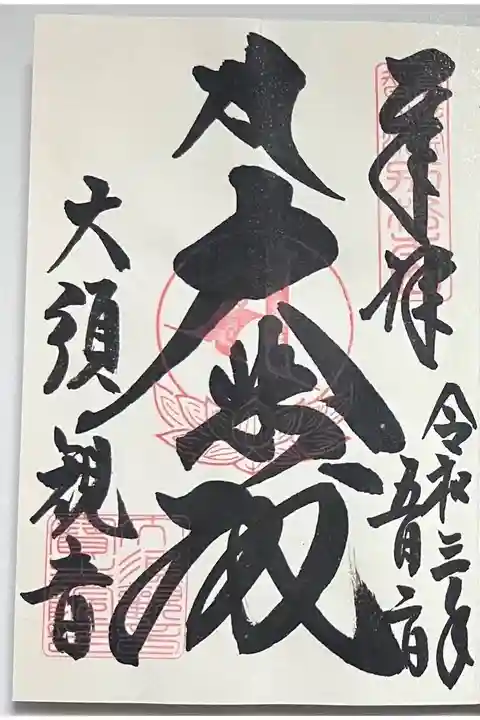 奉拝
令和三年
五月二日
大悲殿
大須観音